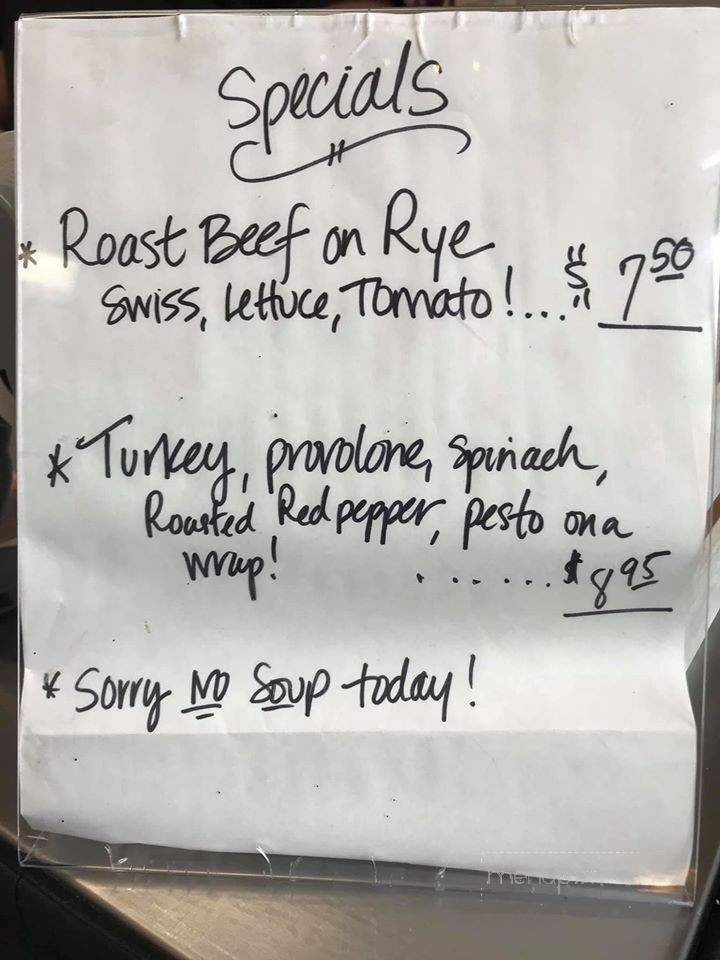 Specials
* Roast Beef on Rye
Swiss, Lettuce, Tomato!... $ 7 50
* Turkey, provolone, spinach,
Roasted Red pepper, pesto on a
wrap! ...... $ 8 95
* Sorry NO Soup today!